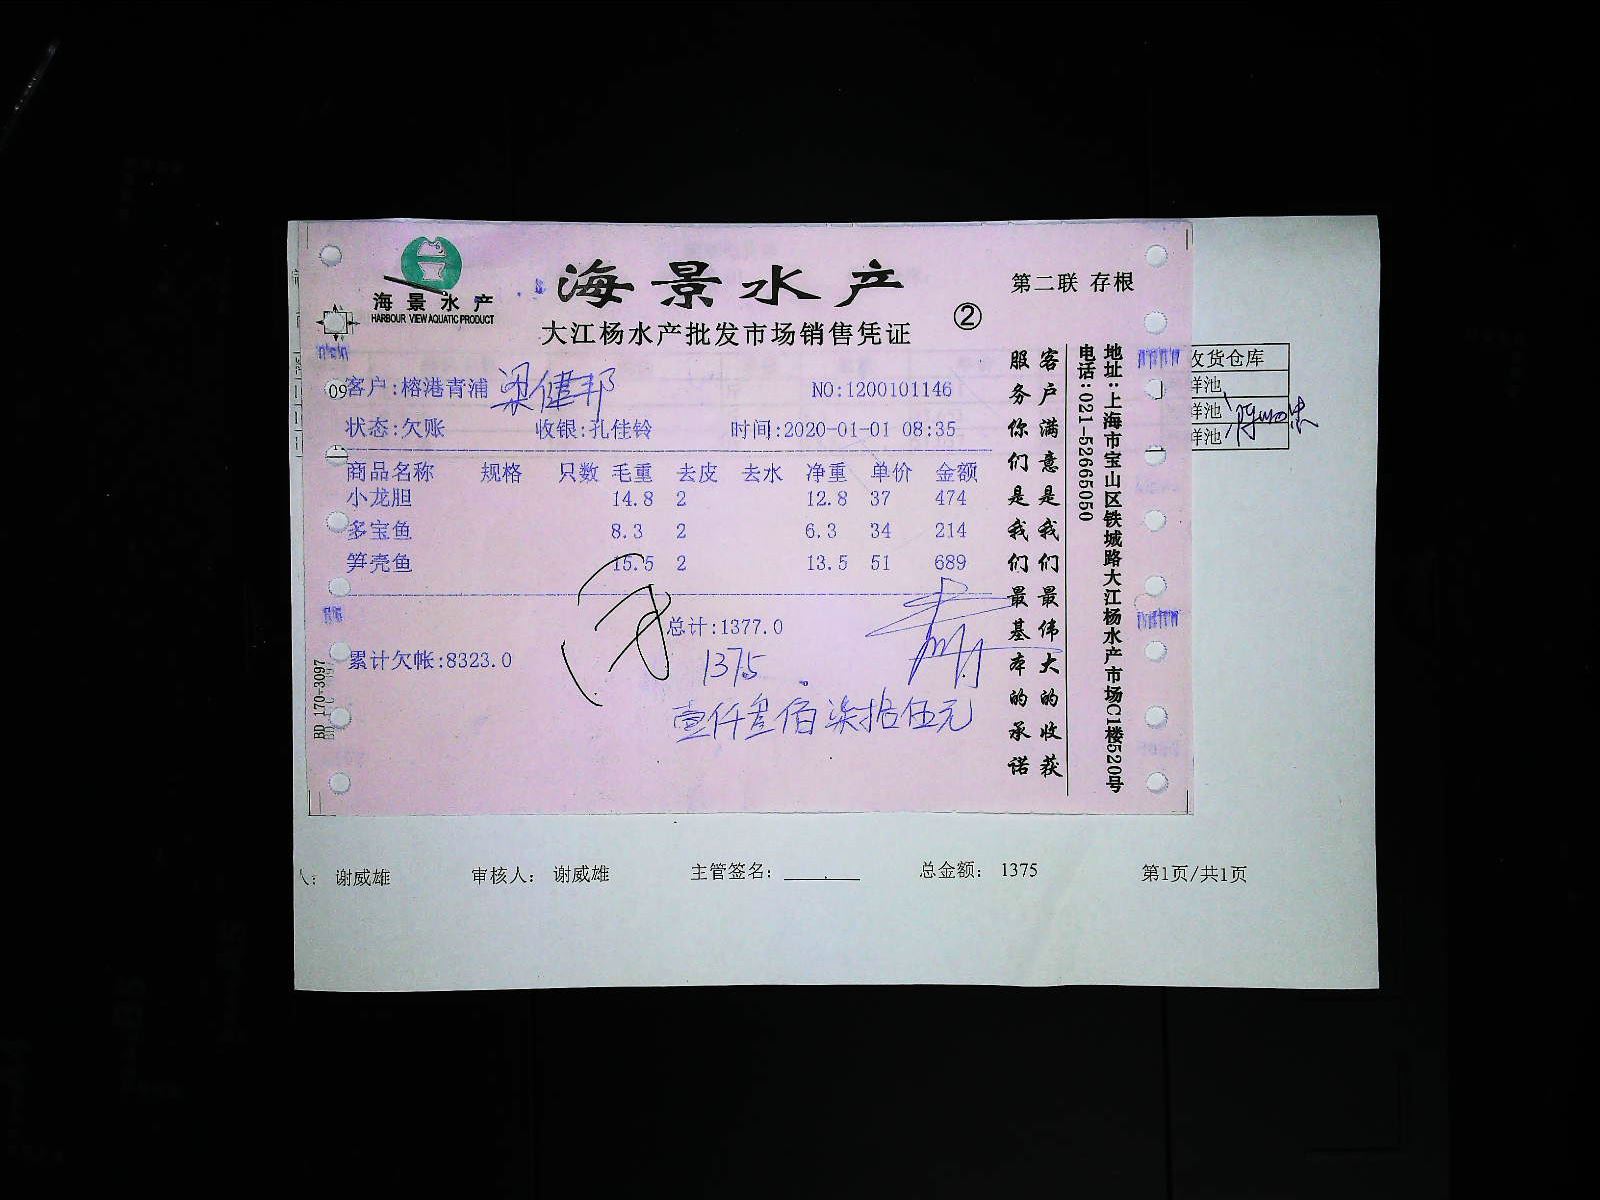 海景水产
HARBOUR VIEW AQUATIC PRODUCT
海景水产
大江杨水产批发市场销售凭证
②
第二联 存根
09
客户:榕港青浦 梁健邦
NO:1200101146
状态:欠账 收银:孔佳铃 时间:2020-01-01 08:35
商品名称 规格 只数 毛重 去皮 去水 净重 单价 金额
小龙胆 14.8 2 12.8 37 474
多宝鱼 8.3 2 6.3 34 214
笋壳鱼 15.5 2 13.5 51 689
总计:1377.0
累计欠帐:8323.0
1375
壹仟叁佰柒拾伍元
客户满意是我们最伟大的收获
服务你们是我们最基本的承诺
地址:上海市宝山区铁城路大江杨水产市场C1楼520号
电话:021-52665050
BD 170-3097
收货仓库
鲜池
鲜池
鲜池
人: 谢威雄 审核人: 谢威雄 主管签名: 总金额: 1375 第1页/共1页